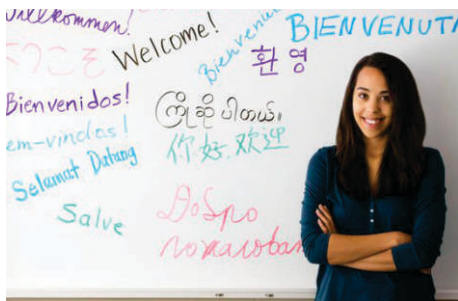 Willkommen!
ようこそ
Welcome!
Bienvenue
BIENVENUTA
환영
Bienvenidos!
em-vindos!
Selamat Datang
Salve
ကြိုဆိုပါတယ်။
你好.欢迎
Добро
пожаловат